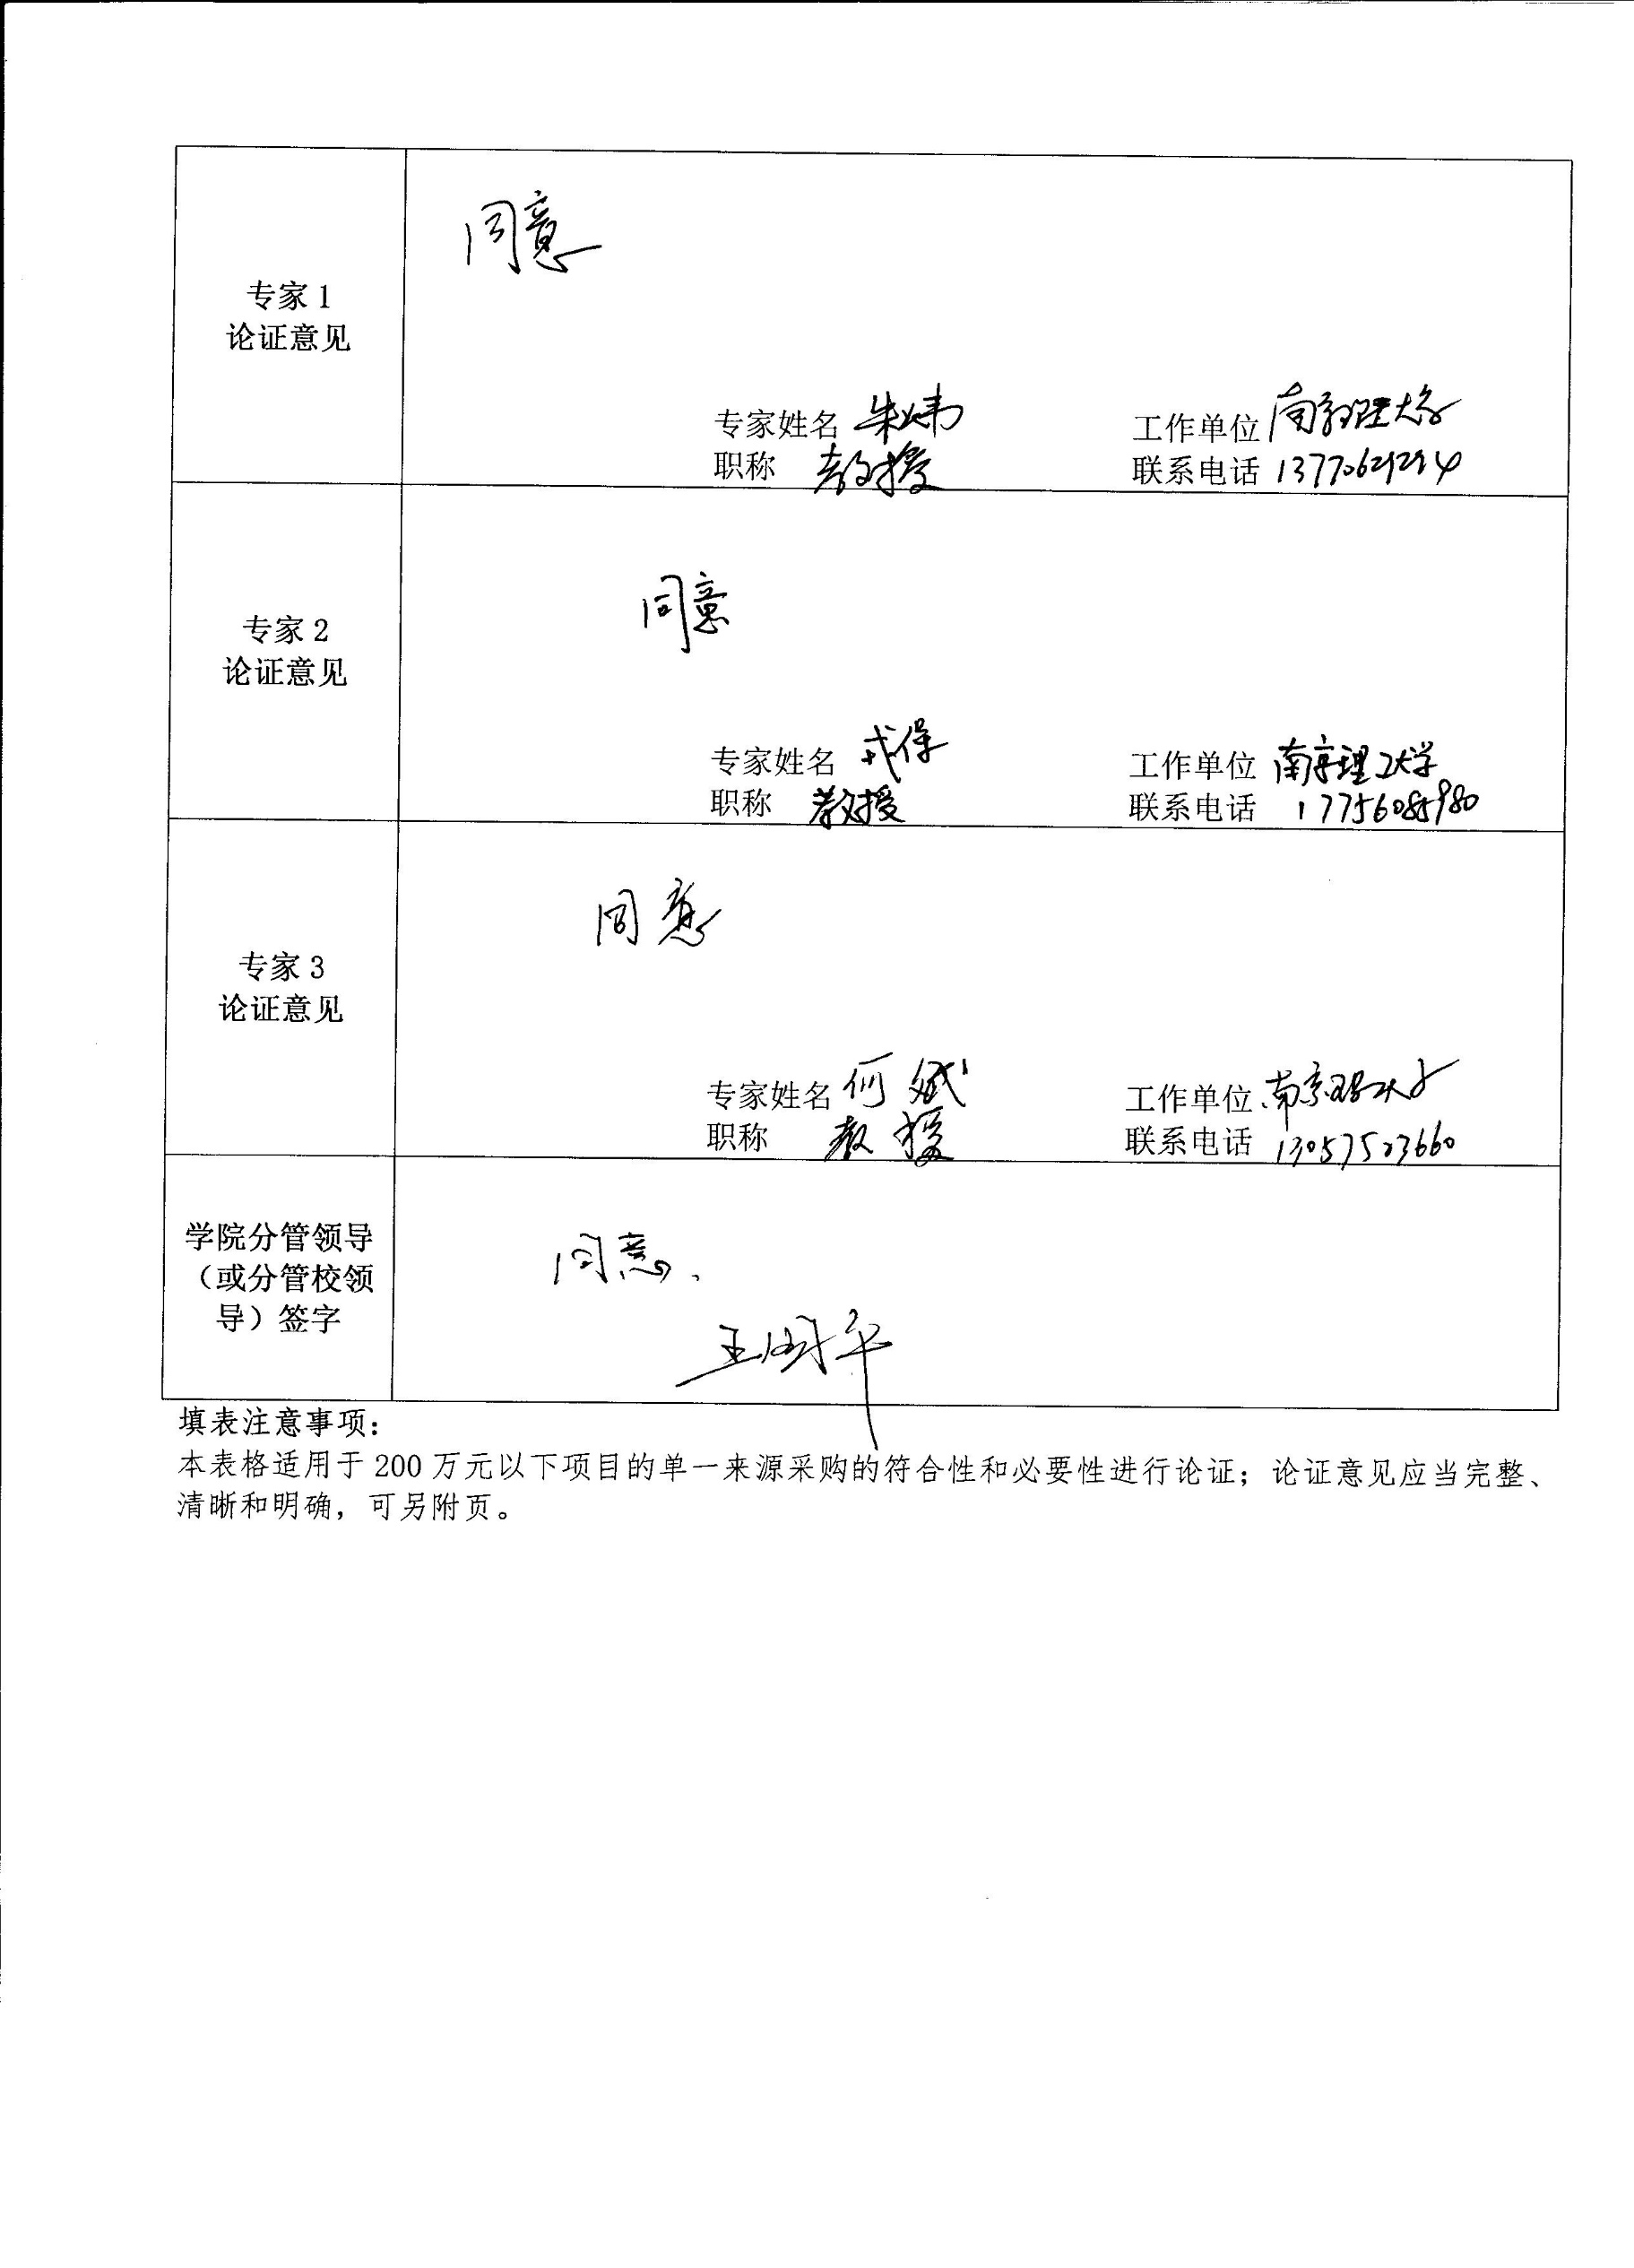 同意
专家1
论证意见
专家姓名 朱炜 工作单位 南京理工大学
职称 教授 联系电话
同意
专家2
论证意见
专家姓名 工作单位 南京理工大学
职称 教授 联系电话 17756085980
同意
专家3
论证意见
专家姓名 何斌 工作单位 南京理工大学
职称 教授 联系电话 13057523660
学院分管领导
（或分管校领
导）签字
同意、
王国平
填表注意事项：
本表格适用于 200 万元以下项目的单一来源采购的符合性和必要性进行论证；论证意见应当完整、
清晰和明确，可另附页。